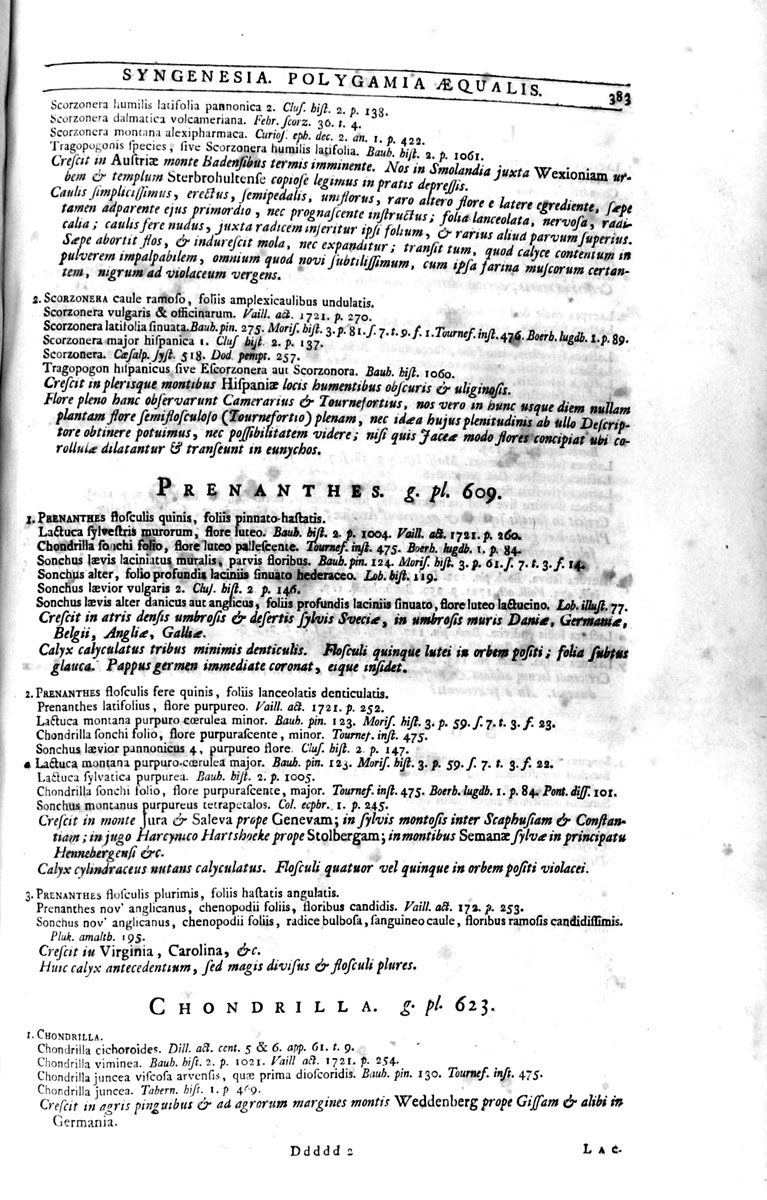 SYNGENESIA. POLYGAMIA ÆQUALIS. 383
Scorzonera humilis latifolia pannonica 2. Cluſ. hiſt. 2. p. 138.
Scorzonera dalmatica volcameriana. Febr. ſcorz. 36. t. 4.
Scorzonera montana alexipharmaca. Curioſ. eph. dec. 2. an. 1. p. 422.
Tragopogonis ſpecies, ſive Scorzonera humilis latifolia. Bauh. hiſt. 2. p. 1061.
Creſcit in Auſtriæ monte Badenſibus termis imminente. Nos in Smolandia juxta Wexioniam ur-
bem & templum Sterbrohultenſe copioſe legimus in pratis depreſſis.
Caulis ſimpliciſſimus, erectus, ſemipedalis, uniflorus, raro altero flore e latere egrediente, ſæpe
tamen adparente ejus primordio, nec prognaſcente inſtructus; folia lanceolata, nervoſa, radi-
calia; caulis fere nudus, juxta radicem inſeritur ipſi folium, & rarius aliud parvum ſuperius.
Sæpe abortit flos, & indureſcit mola, nec expanditur; tranſit tum, quod calyce contentum in
pulverem impalpabilem, omnium quod novi ſubtiliſſimum, cum ipſa farina muſcorum certan-
tem, nigrum ad violaceum vergens.
2. SCORZONERA caule ramoſo, foliis amplexicaulibus undulatis.
Scorzonera vulgaris & officinarum. Vaill. act. 1721. p. 270.
Scorzonera latifolia ſinuata. Bauh. pin. 275. Moriſ. hiſt. 3. p. 81. ſ. 7. t. 9. f. 1. Tournef. inſt. 476. Boerh. lugdb. 1. p. 89.
Scorzonera major hiſpanica 1. Cluſ hiſt. 2. p. 137.
Scorzonera. Cæſalp. ſyſt. 518. Dod. pempt. 257.
Tragopogon hiſpanicus ſive Eſcorzonera aut Scorzonora. Bauh. hiſt. 1060.
Creſcit in plerisque montibus Hiſpaniæ locis humentibus obſcuris & uliginoſis.
Flore pleno hanc obſervarunt Camerarius & Tournefortius, nos vero in hunc usque diem nullam
plantam flore ſemifloſculoſo (Tournefortio) plenam, nec idæa hujus plenitudinis ab ullo Deſcrip-
tore obtinere potuimus, nec poſſibilitatem videre; niſi quis Jaceæ modo flores concipiat ubi co-
rollulæ dilatantur & tranſeunt in eunychos.
PRENANTHES. g. pl. 609.
1. PRENANTHES floſculis quinis, foliis pinnato-haſtatis.
Lactuca ſylveſtris murorum, flore luteo. Bauh. hiſt. 2. p. 1004. Vaill. act. 1721. p. 260.
Chondrilla ſonchi folio, flore luteo palleſcente. Tournef. inſt. 475. Boerh. lugdb. 1. p. 84.
Sonchus lævis laciniatus muralis, parvis floribus. Bauh. pin. 124. Moriſ. hiſt. 3. p. 61. ſ. 7. t. 3. f. 14.
Sonchus alter, folio profundis laciniis ſinuato hederaceo. Lob. hiſt. 119.
Sonchus lævior vulgaris 2. Cluſ. hiſt. 2 p. 146.
Sonchus lævis alter danicus aut anglicus, foliis profundis laciniis ſinuato, flore luteo lactucino. Lob. illuſt. 77.
Creſcit in atris denſis umbroſis & deſertis ſylvis Sveciæ, in umbroſis muris Daniæ, Germaniæ,
Belgii, Angliæ, Galliæ.
Calyx calyculatus tribus minimis denticulis. Floſculi quinque lutei in orbem poſiti; folia ſubtus
glauca. Pappus germen immediate coronat, eique inſidet.
2. PRENANTHES floſculis fere quinis, foliis lanceolatis denticulatis.
Prenanthes latifolius, flore purpureo. Vaill. act. 1721. p. 252.
Lactuca montana purpuro cœrulea minor. Bauh. pin. 123. Moriſ. hiſt. 3. p. 59. ſ. 7. t. 3. f. 23.
Chondrilla ſonchi folio, flore purpuraſcente, minor. Tournef. inſt. 475.
Sonchus lævior pannonicus 4, purpureo flore. Cluſ. hiſt. 2. p. 147.
Lactuca montana purpuro-cœrulea major. Bauh. pin. 123. Moriſ. hiſt. 3. p. 59. ſ. 7. t. 3. f. 22.
Lactuca ſylvatica purpurea. Bauh. hiſt. 2. p. 1005.
Chondrilla ſonchi folio, flore purpuraſcente, major. Tournef. inſt. 475. Boerh. lugdb. 1. p. 84. Pont. diſſ. 101.
Sonchus montanus purpureus tetrapetalos. Col. ecphr. 1. p. 245.
Creſcit in monte Jura & Saleva prope Genevam; in ſylvis montoſis inter Scaphuſiam & Conſtan-
tiam; in jugo Harcynico Hartshoeke prope Stolbergam; in montibus Semanæ ſylvæ in principatu
Hennebergenſi &c.
Calyx cylindraceus nutans calyculatus. Floſculi quatuor vel quinque in orbem poſiti violacei.
3. PRENANTHES floſculis plurimis, foliis haſtatis angulatis.
Prenanthes nov' anglicanus, chenopodii foliis, floribus candidis. Vaill. act. 172. p. 253.
Sonchus nov' anglicanus, chenopodii foliis, radice bulboſa, ſanguineo caule, floribus ramoſis candidiſſimis.
Pluk. amalth. 195.
Creſcit in Virginia, Carolina, &c.
Huic calyx antecedentium, ſed magis diviſus & floſculi plures.
CHONDRILLA. g. pl. 623.
1. CHONDRILLA.
Chondrilla cichoroides. Dill. act. cent. 5 & 6. app. 61. t. 9.
Chondrilla viminea. Bauh. hiſt. 2. p. 1021. Vaill act. 1721. p. 254.
Chondrilla juncea viſcoſa arvenſis, quæ prima dioſcoridis. Bauh. pin. 130. Tournef. inſt. 475.
Chondrilla juncea. Tabern. hiſt. 1. p
Creſcit in agris pinguibus & ad agrorum margines montis Weddenberg prope Giſſam & alibi in
Germania.
Ddddd 2 LAC.